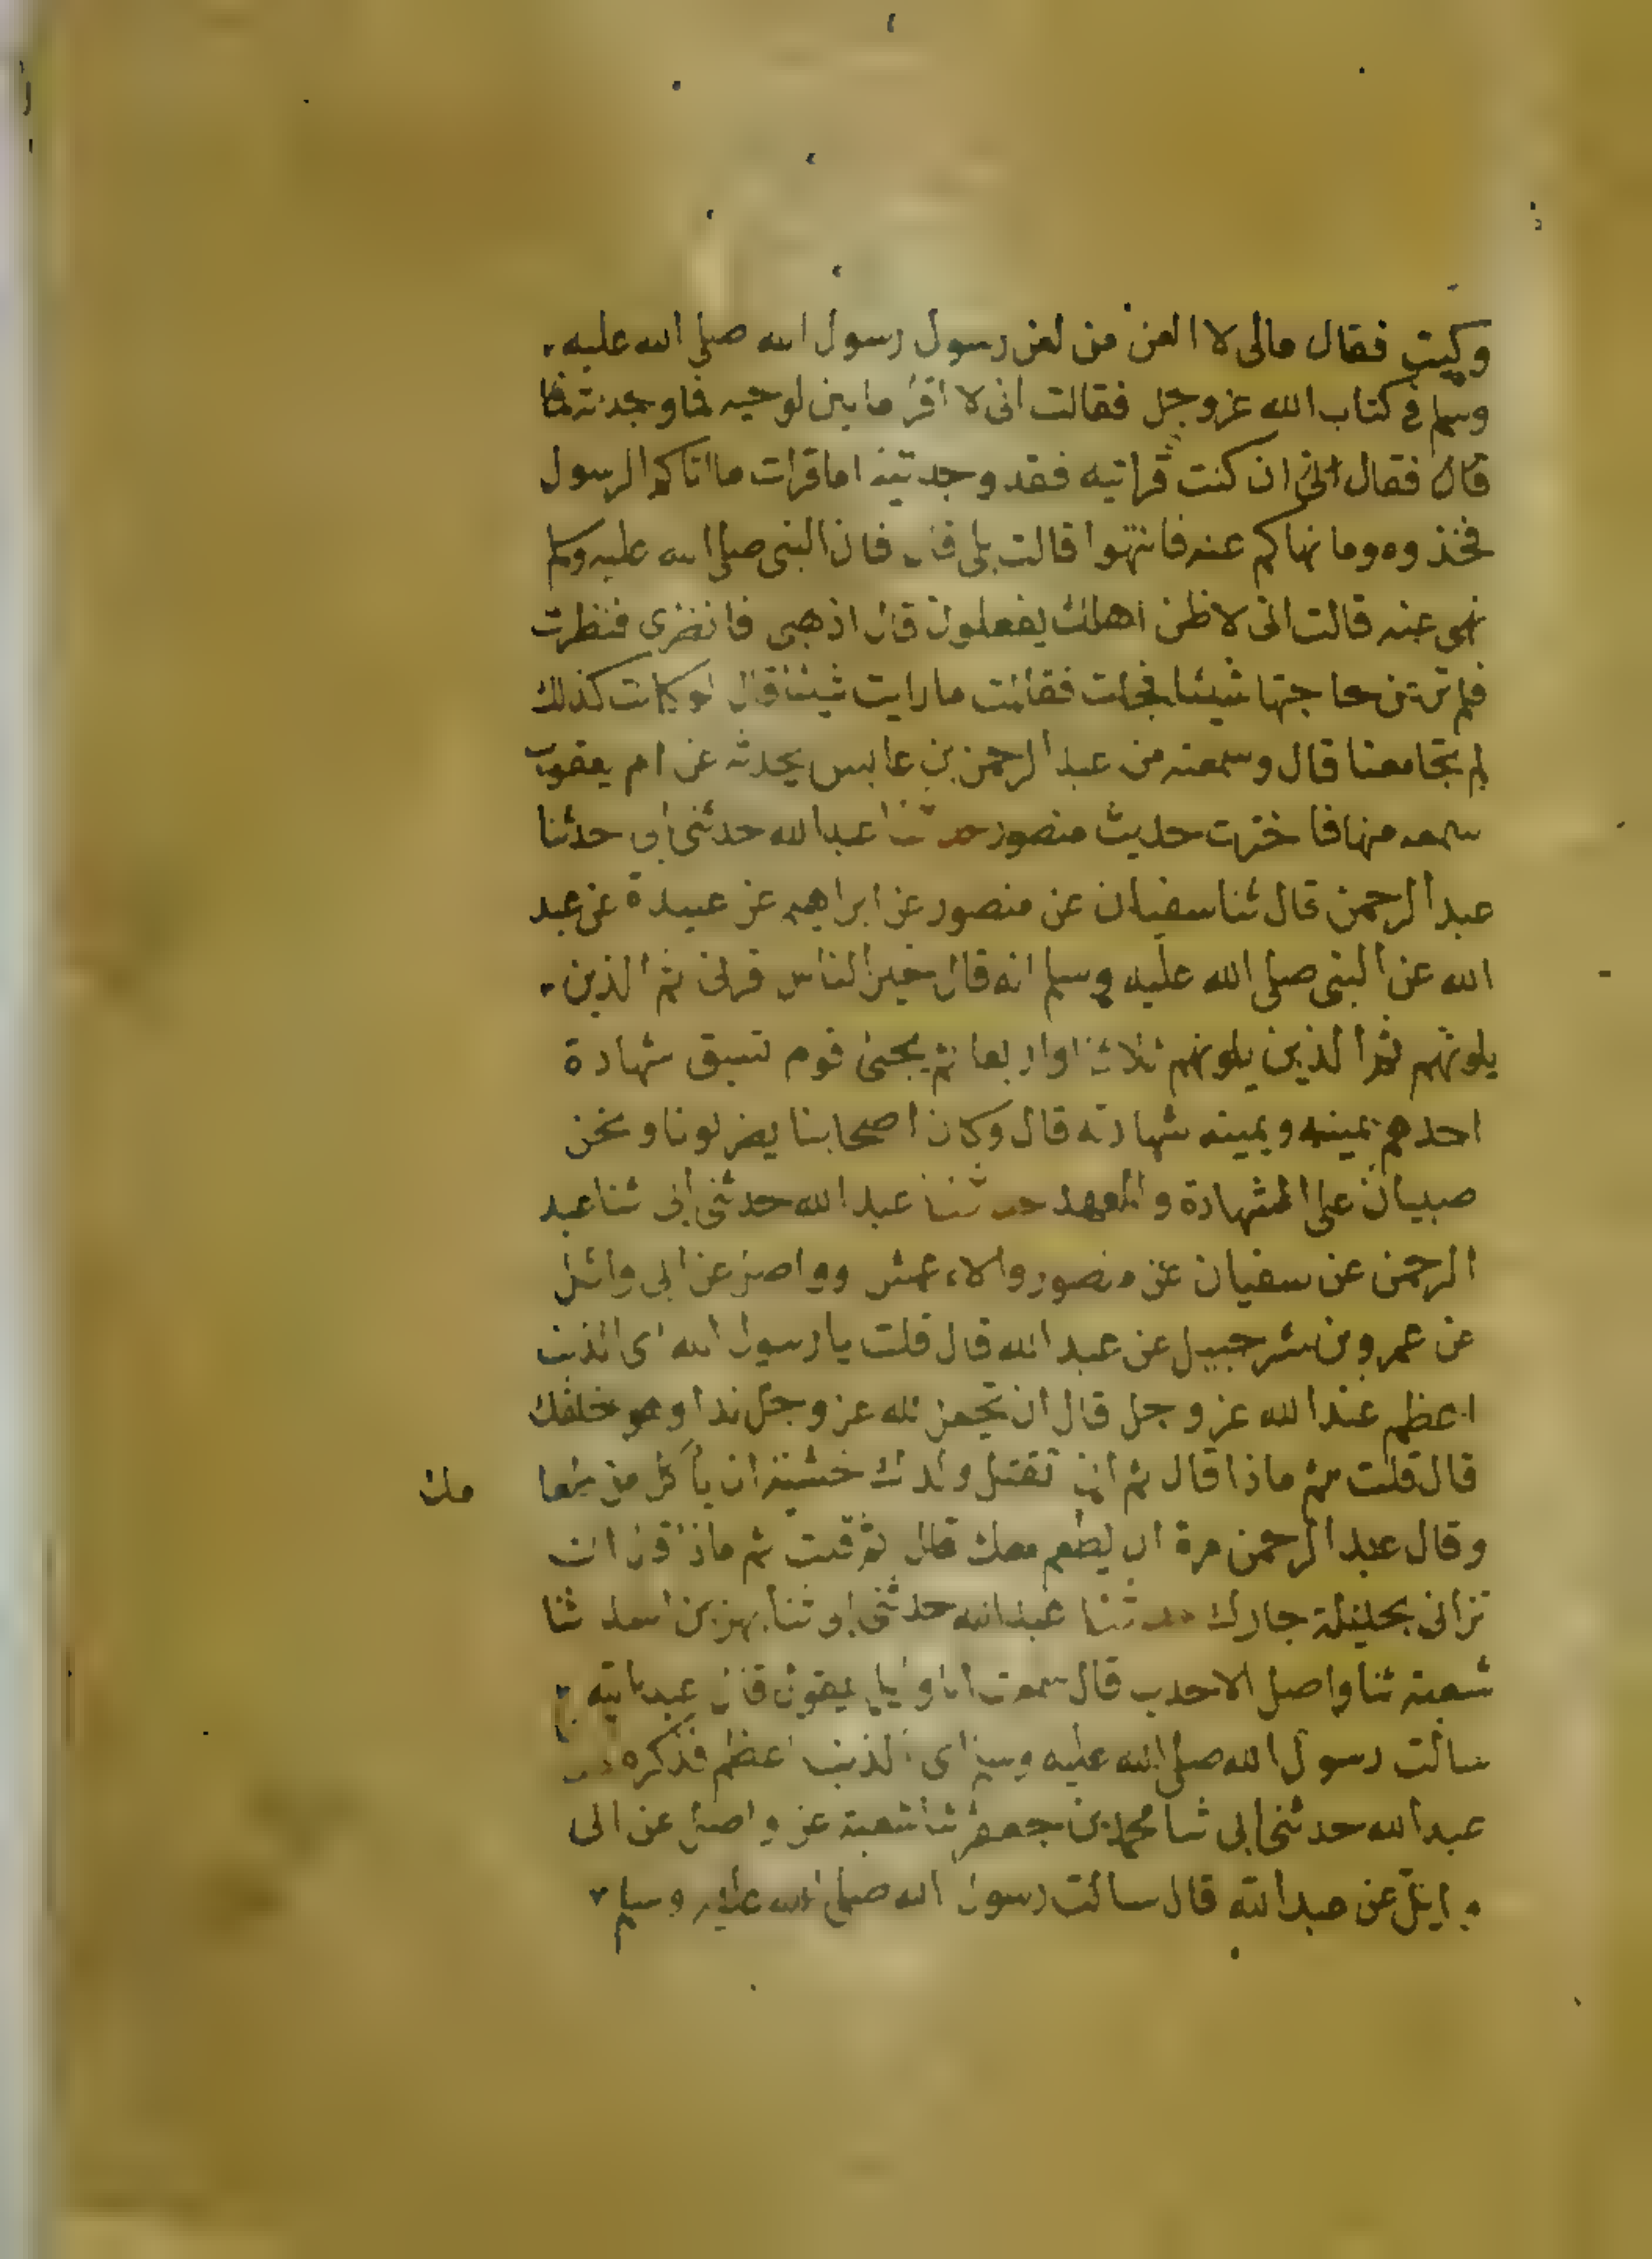 وكيت فقال مالى لا العن من لعن رسول رسول الله صلى الله عليه
وسلم فى كتاب الله عز وجل فقالت انى لا اقرأ ما بين لوحيه فما وجدته فما
قال فقال انى ان كنت قراتيه فقد وجدتيه اما قرات ما اتاكم الرسول
فخذوه وما نهاكم عنه فانتهوا قالت بلى قال فان النبى صلى الله عليه وسلم
نهى عنه قالت انى لاظن اهلك يفعلون قال اذهبى فانظرى فنظرت
فلم تر من حاجتها شيئا فجات فقالت ما رايت شيئا قال لو كانت كذلك
لم تجامعنا قال وسمعته من عبد الرحمن بن عابس يحدثه عن ام يعقوب
سمعه منها فاخترت حديث منصور حدثنا عبد الله حدثنى ابى حدثنا
عبد الرحمن قال ثنا سفيان عن منصور عن ابراهيم عن عبيدة عن عبد
الله عن النبى صلى الله عليه وسلم انه قال خير الناس قرنى ثم الذين
يلونهم ثم الذين يلونهم ثلاثا او اربعا ثم يجئ قوم تسبق شهادة
احدهم يمينه ويمينه شهادته قال وكان اصحابنا يضربونا ونحن
صبيان على الشهادة والعهد حدثنا عبد الله حدثنى ابى ثنا عبد
الرحمن عن سفيان عن منصور والاعمش وواصل عن ابى وائل
عن عمرو بن شرحبيل عن عبد الله قال قلت يا رسول الله اى الذنب
اعظم عند الله عز وجل قال ان تجعل لله عز وجل ندا وهو خلقك
قال قلت ثم ماذا قال ثم ان تقتل ولدك خشية ان يأكل من
وقال عبد الرحمن مرة ان يطعم معك قال ثم قلت ثم ماذا قال ان
تزانى بحليلة جارك حدثنا عبد الله حدثنى ابى ثنا بهز بن اسد ثنا
شعبة ثنا واصل الاحدب قال سمعت ابا وايل يقول قال عبد الله
سالت رسول الله صلى الله عليه وسلم اى الذنب اعظم فذكره
عبد الله حدثنى ابى ثنا محمد بن جعفر ثنا شعبة عن واصل عن ابى
وايل عن عبد الله قال سالت رسول الله صلى الله عليه وسلم